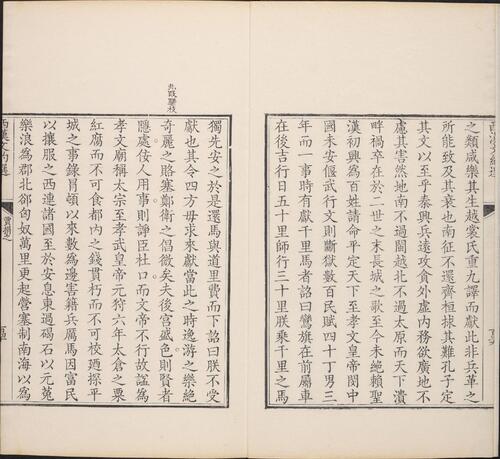 之類咸樂其生越裳氏重九譯而獻此非兵革之
所能致及其衰也南征不還齊桓捄其難孔子定
其文以至乎秦興兵遠攻貪外虛內務欲廣地不
慮其害然地南不過閩越北不過太原而天下潰
畔禍卒在於二世之末長城之歌至今未絕賴聖
漢初興為百姓請命平定天下至孝文皇帝閔中
國未安偃武行文則斷獄數百民賦四十丁男三
年而一事時有獻千里馬者詔曰鸞旗在前屬車
在後吉行日五十里師行三十里朕乘千里之馬
獨先安之於是還馬與道里費而下詔曰朕不受
獻也其令四方毋求來獻當此之時逸游之樂絕
奇麗之賂塞鄭衛之倡微矣夫後宮盛色則賢者
隱處佞人用事則諍臣杜口而文帝不行故謚為
孝文廟稱太宗至孝武皇帝元狩六年太倉之粟
紅腐而不可食都內之錢貫朽而不可校迺探平
城之事錄冒頓以來數為邊害籍兵厲馬因富民
以攘服之西連諸國至於安息東過碣石以元菟
樂浪為郡北郤匈奴萬里更起營塞制南海以為
西漢文約選
賈捐之